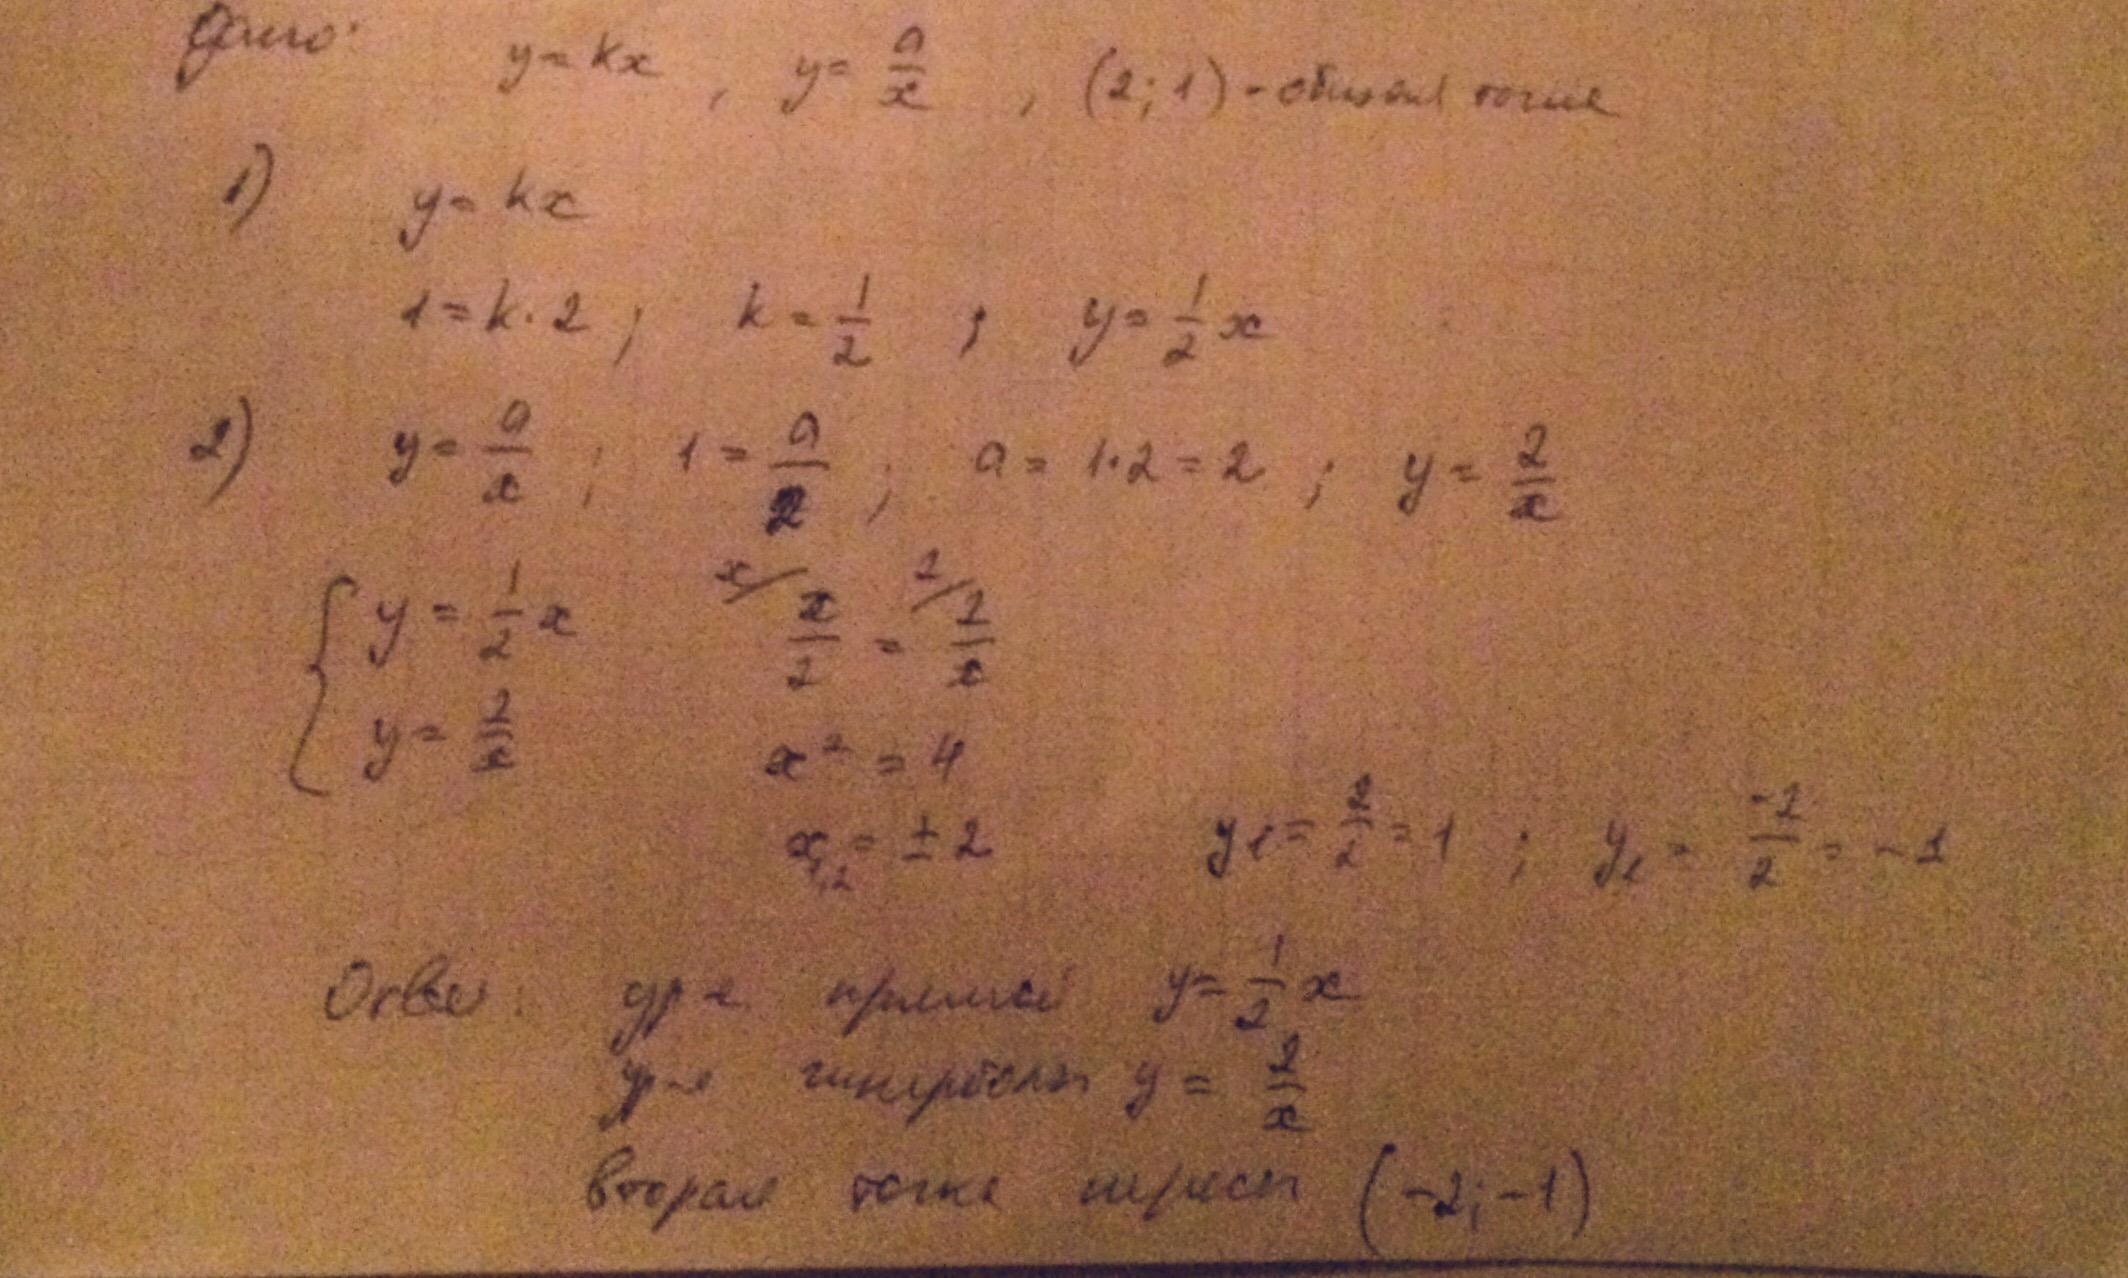 Дано: y = kx , y = a/x , (2; 1) - общая точка
1) y = kx
1 = k · 2 ; k = 1/2 ; y = 1/2 x
2) y = a/x ; 1 = a/2 ; a = 1·2 = 2 ; y = 2/x
{ y = 1/2 x
y = 2/x
x/ x/2 = 2/ 2/x
x² = 4
x₁,₂ = ± 2 y₁ = 2/2 = 1 ; y₂ = -2/2 = -1
Ответ: ур-е прямой y = 1/2 x
ур-е гиперболы y = 2/x
вторая точка пересеч (-2; -1)